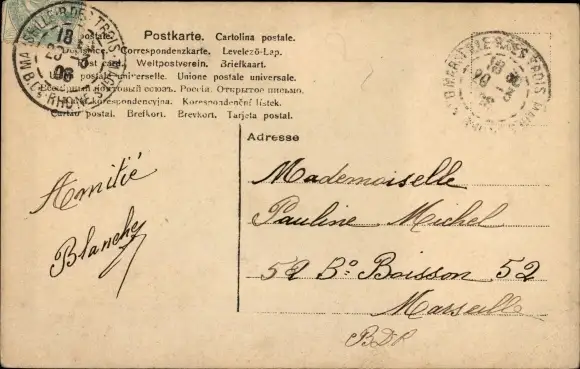 postale. Postkarte. Cartolina postale.
Correspondenzkarte. Levelező-Lap.
Post card. Weltpostverein. Briefkaart.
Union postale universelle. Unione postale universale.
Всемірный почтовый союзъ. Россія. Открытое письмо.
korespondencyjna. Korespondenční listek.
Cartão postal. Brefkort. Brevkort. Tarjeta postal.
Adresse
Amitié
Blanche
Mademoiselle
Pauline Michel
52 Bd Boisson 52
Marseille
BDR